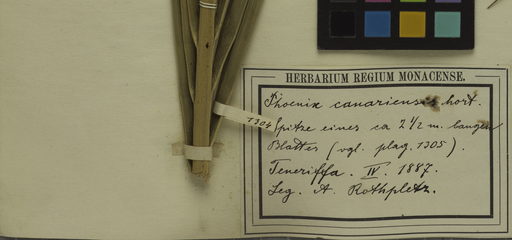 HERBARIUM REGIUM MONACENSE.
Phoenix canariensis hort.
1304
Spitze eines ca 2 1/2 m. langen
Blattes (vgl. plag. 1305).
Teneriffa. IV. 1887.
Leg. A. Rothpletz.